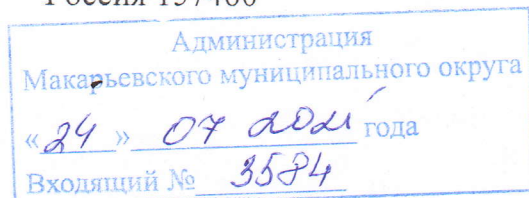 Россия 157460
Администрация
Макарьевского муниципального округа
«24» 07 года
Входящий № 3584